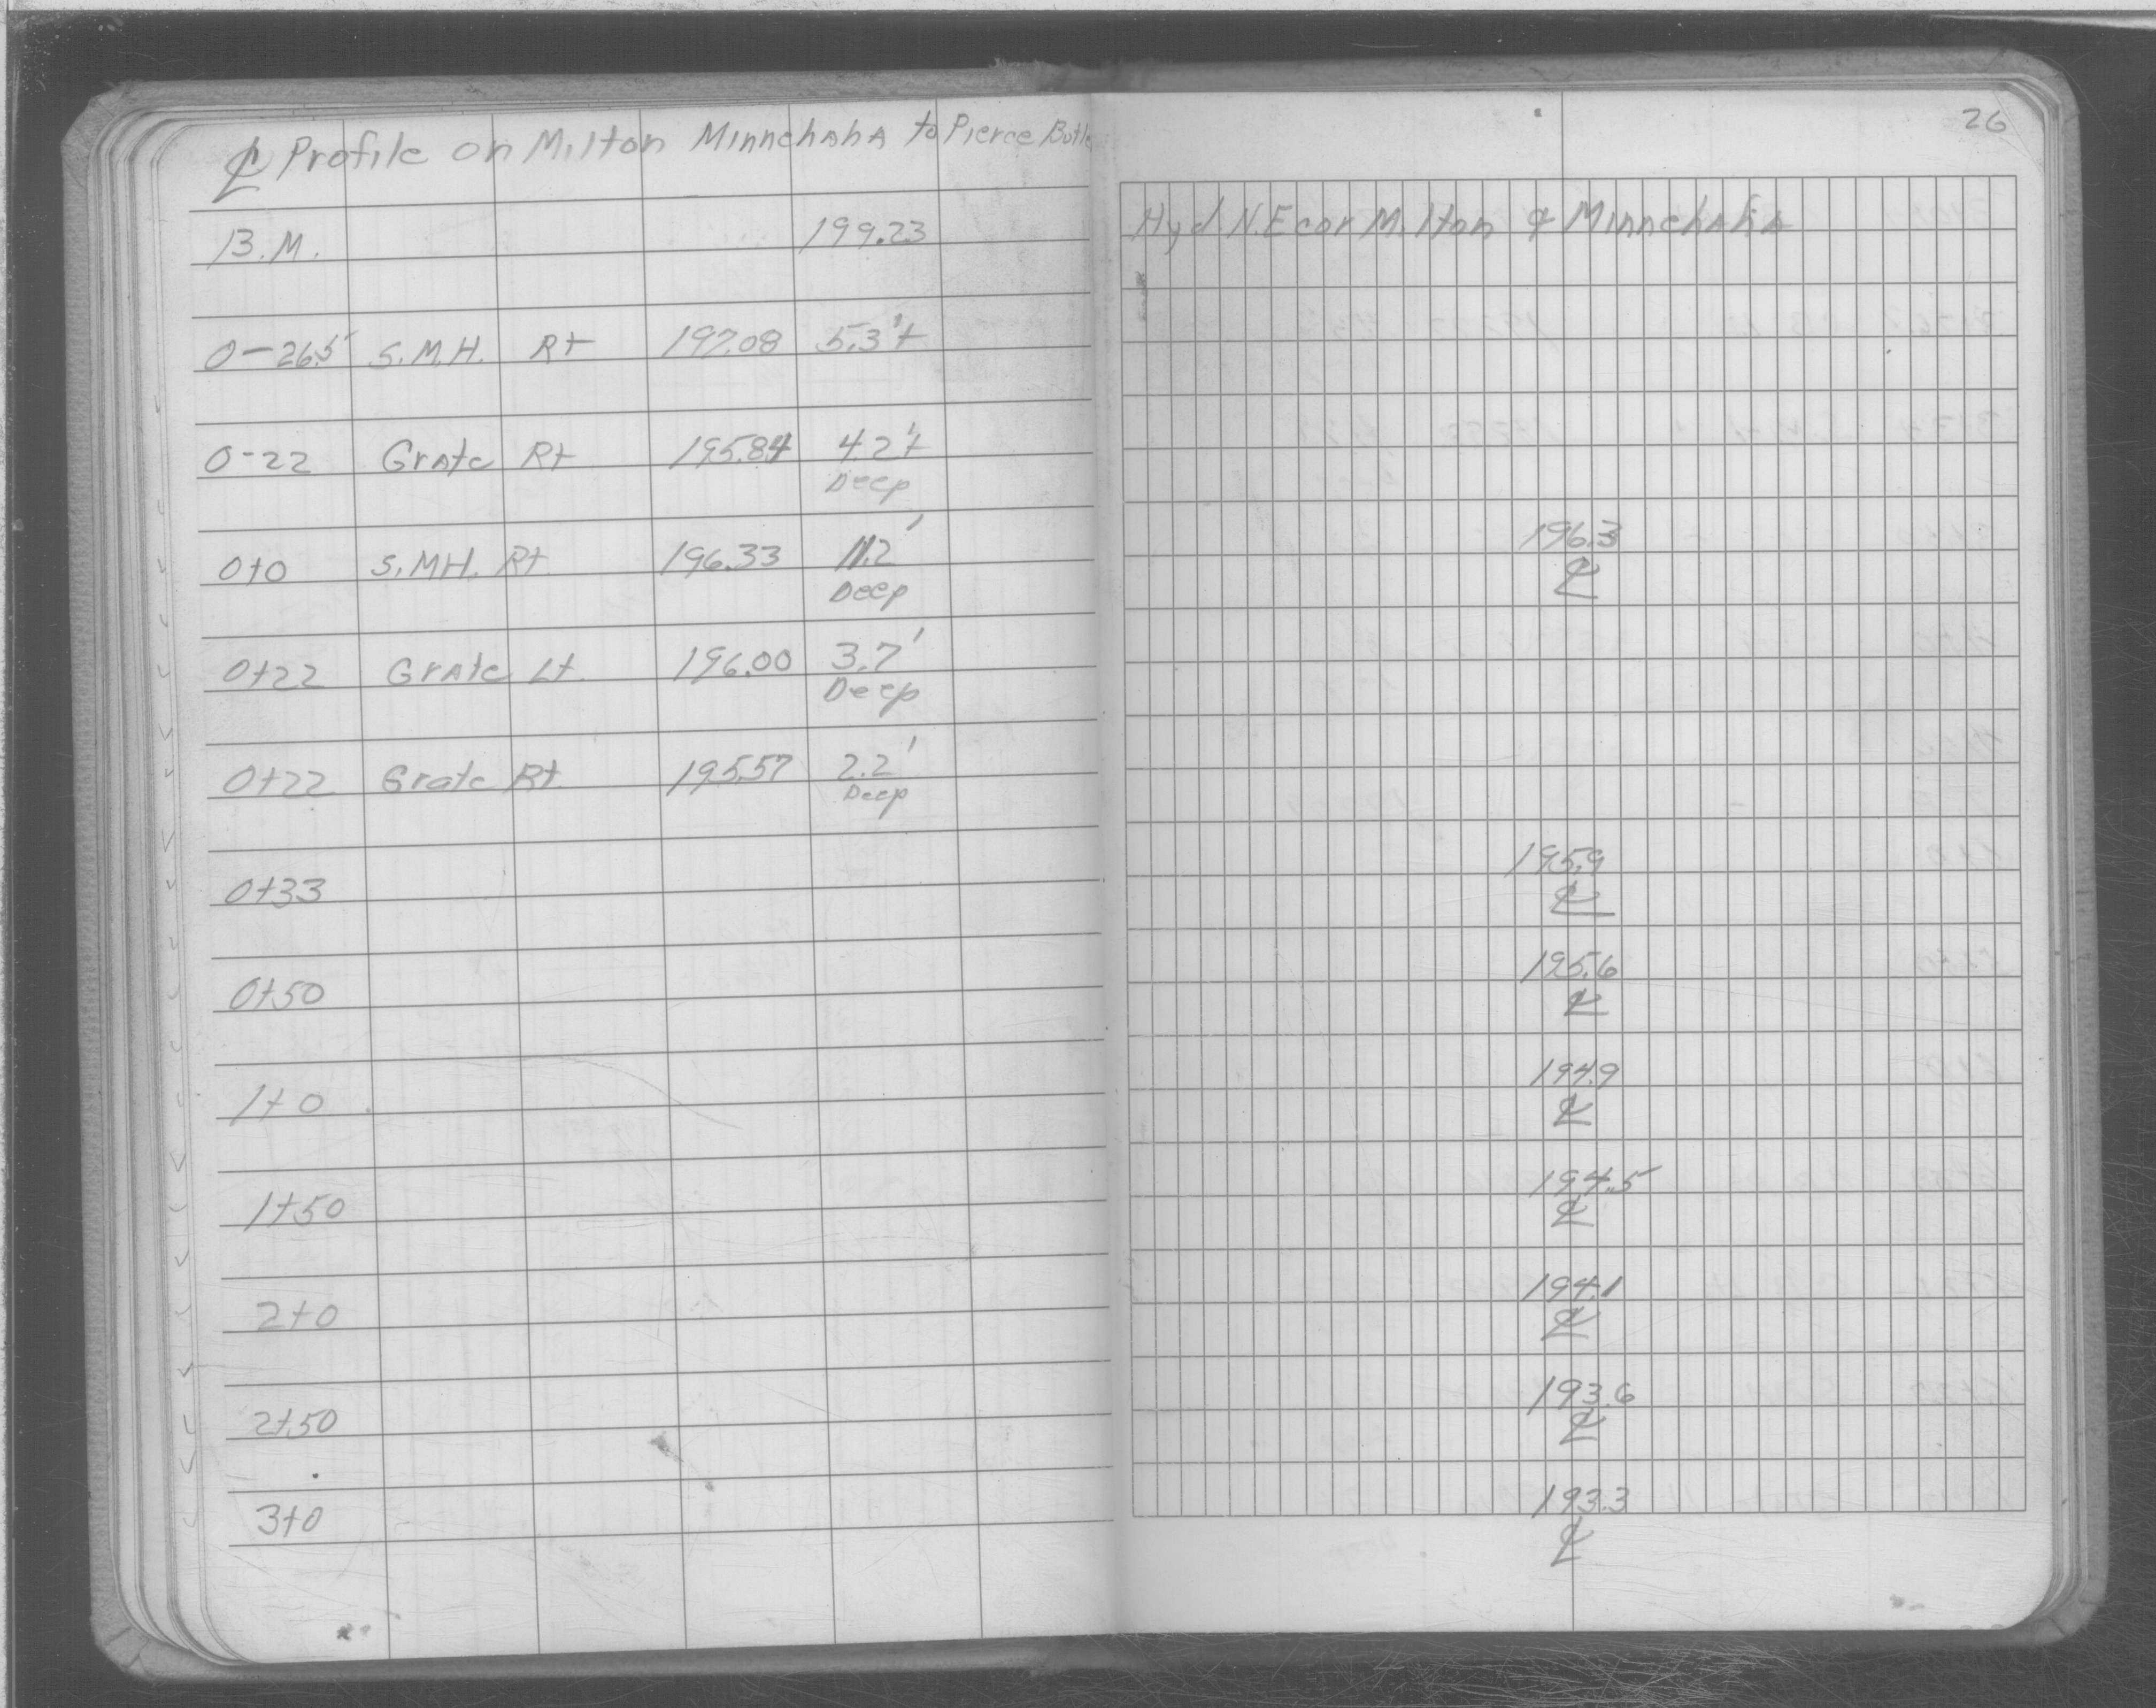 ℄ Profile on Milton Minnehaha to Pierce Butle
26
B.M. 199.23 Hyd. N.E cor Milton & Minnehaha
0-26.5 S.M.H. Rt 197.08 5.3'±
0-22 Grate Rt 195.84 4.2'±
Deep
0+0 S.MH. Rt. 196.33 11.2' 196.3
Deep ℄
0+22 Grate Lt. 196.00 3.7'
Deep
0+22 Grate Rt. 195.57 2.2'
Deep
0+33 195.9
℄
0+50 195.6
℄
1+0 194.9
℄
1+50 194.5
℄
2+0 194.1
℄
2+50 193.6
℄
3+0 193.3
℄